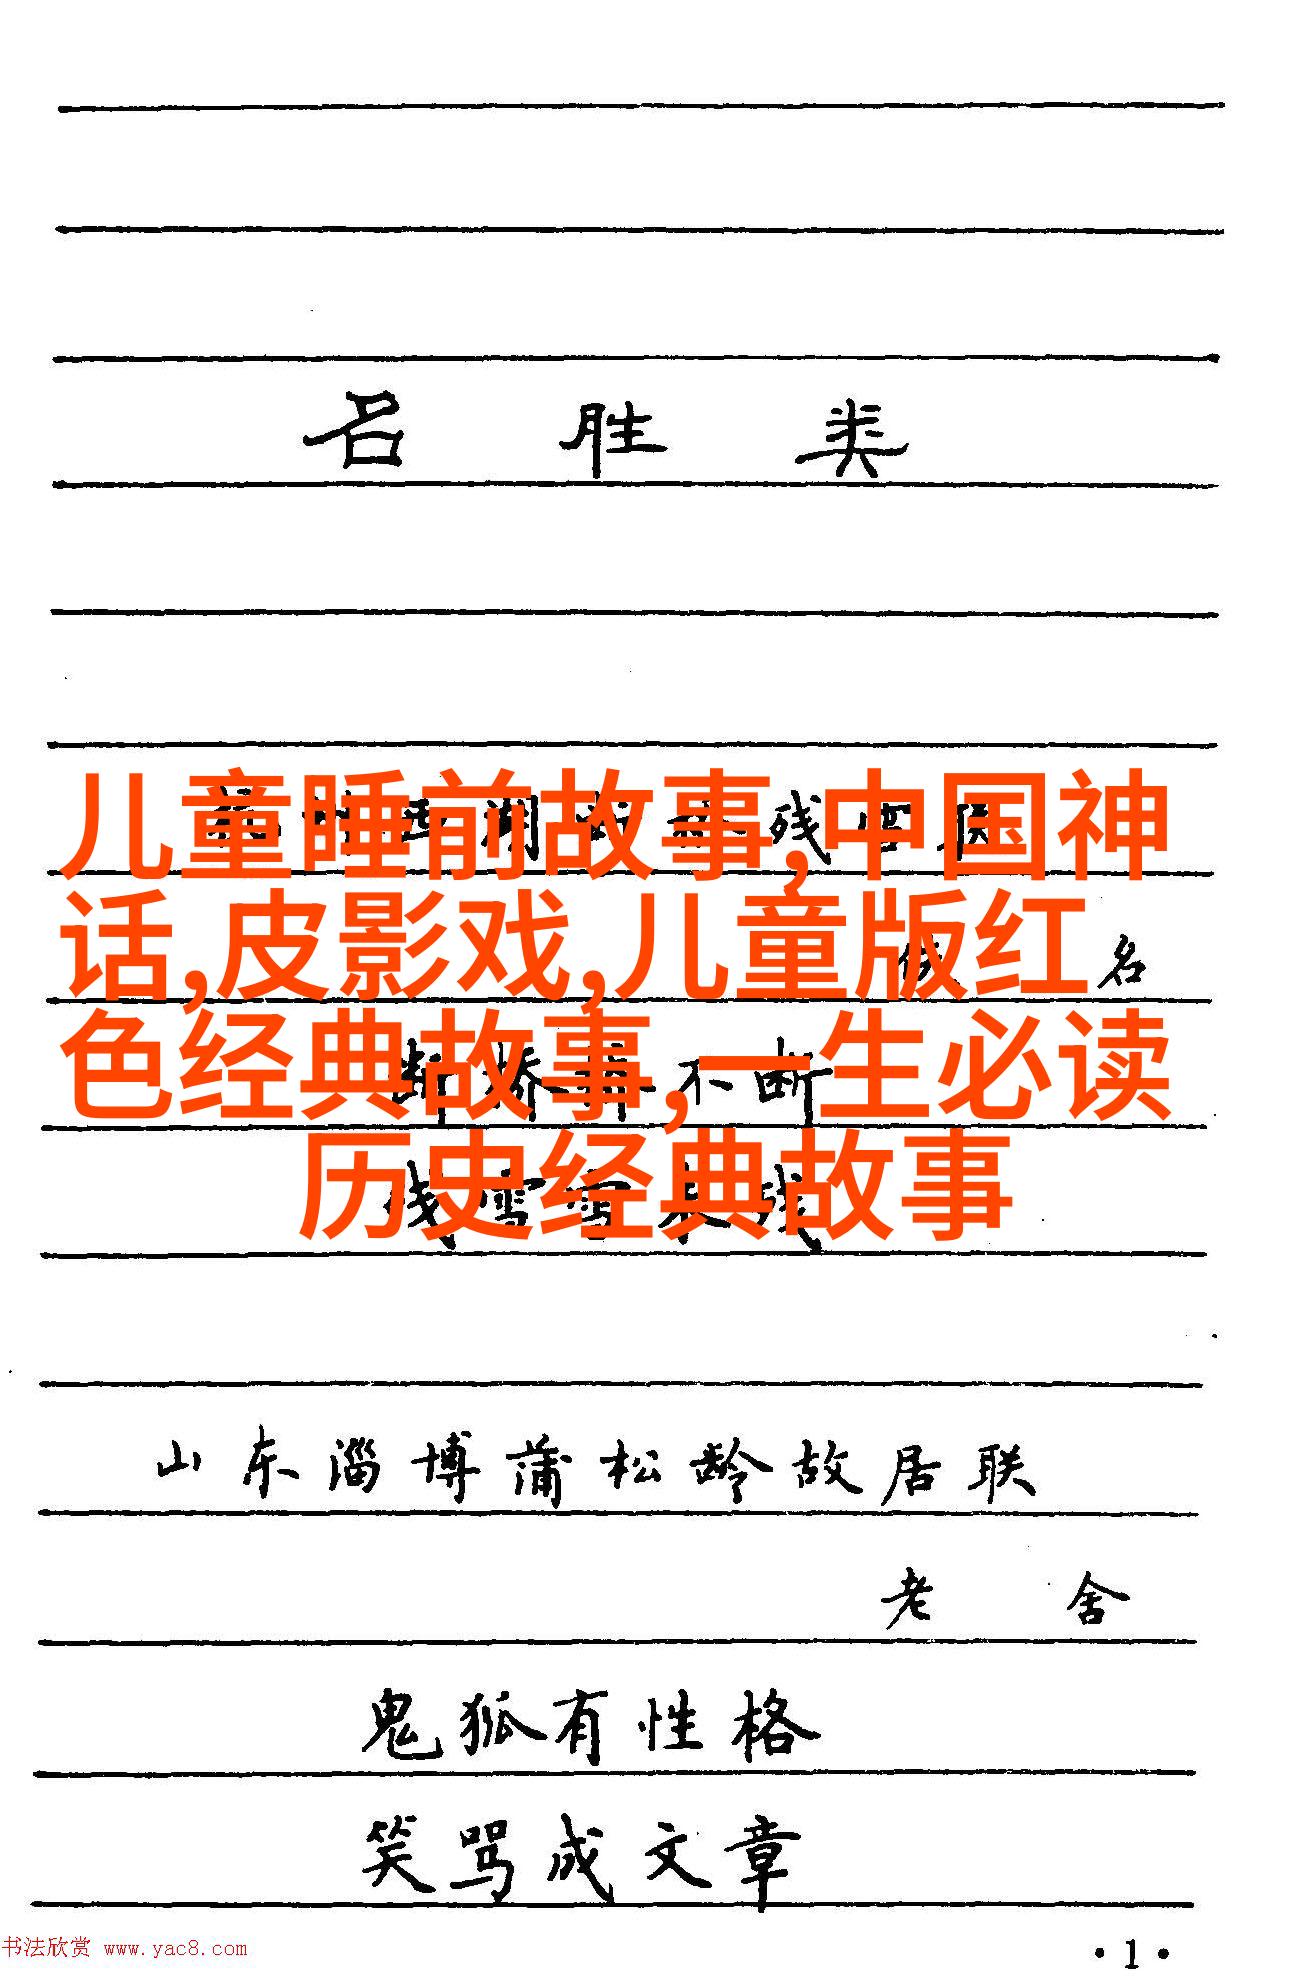 名胜类
儿童睡前故事,中国神
话,皮影戏,儿童版红
名
色经典故事,一生必读
断桥 不断
历史经典故事
残雪雪 残
山东淄博蒲松龄故居联
老舍
鬼狐有性格
笑骂成文章
书法欣赏 www.yac8.com
·1·